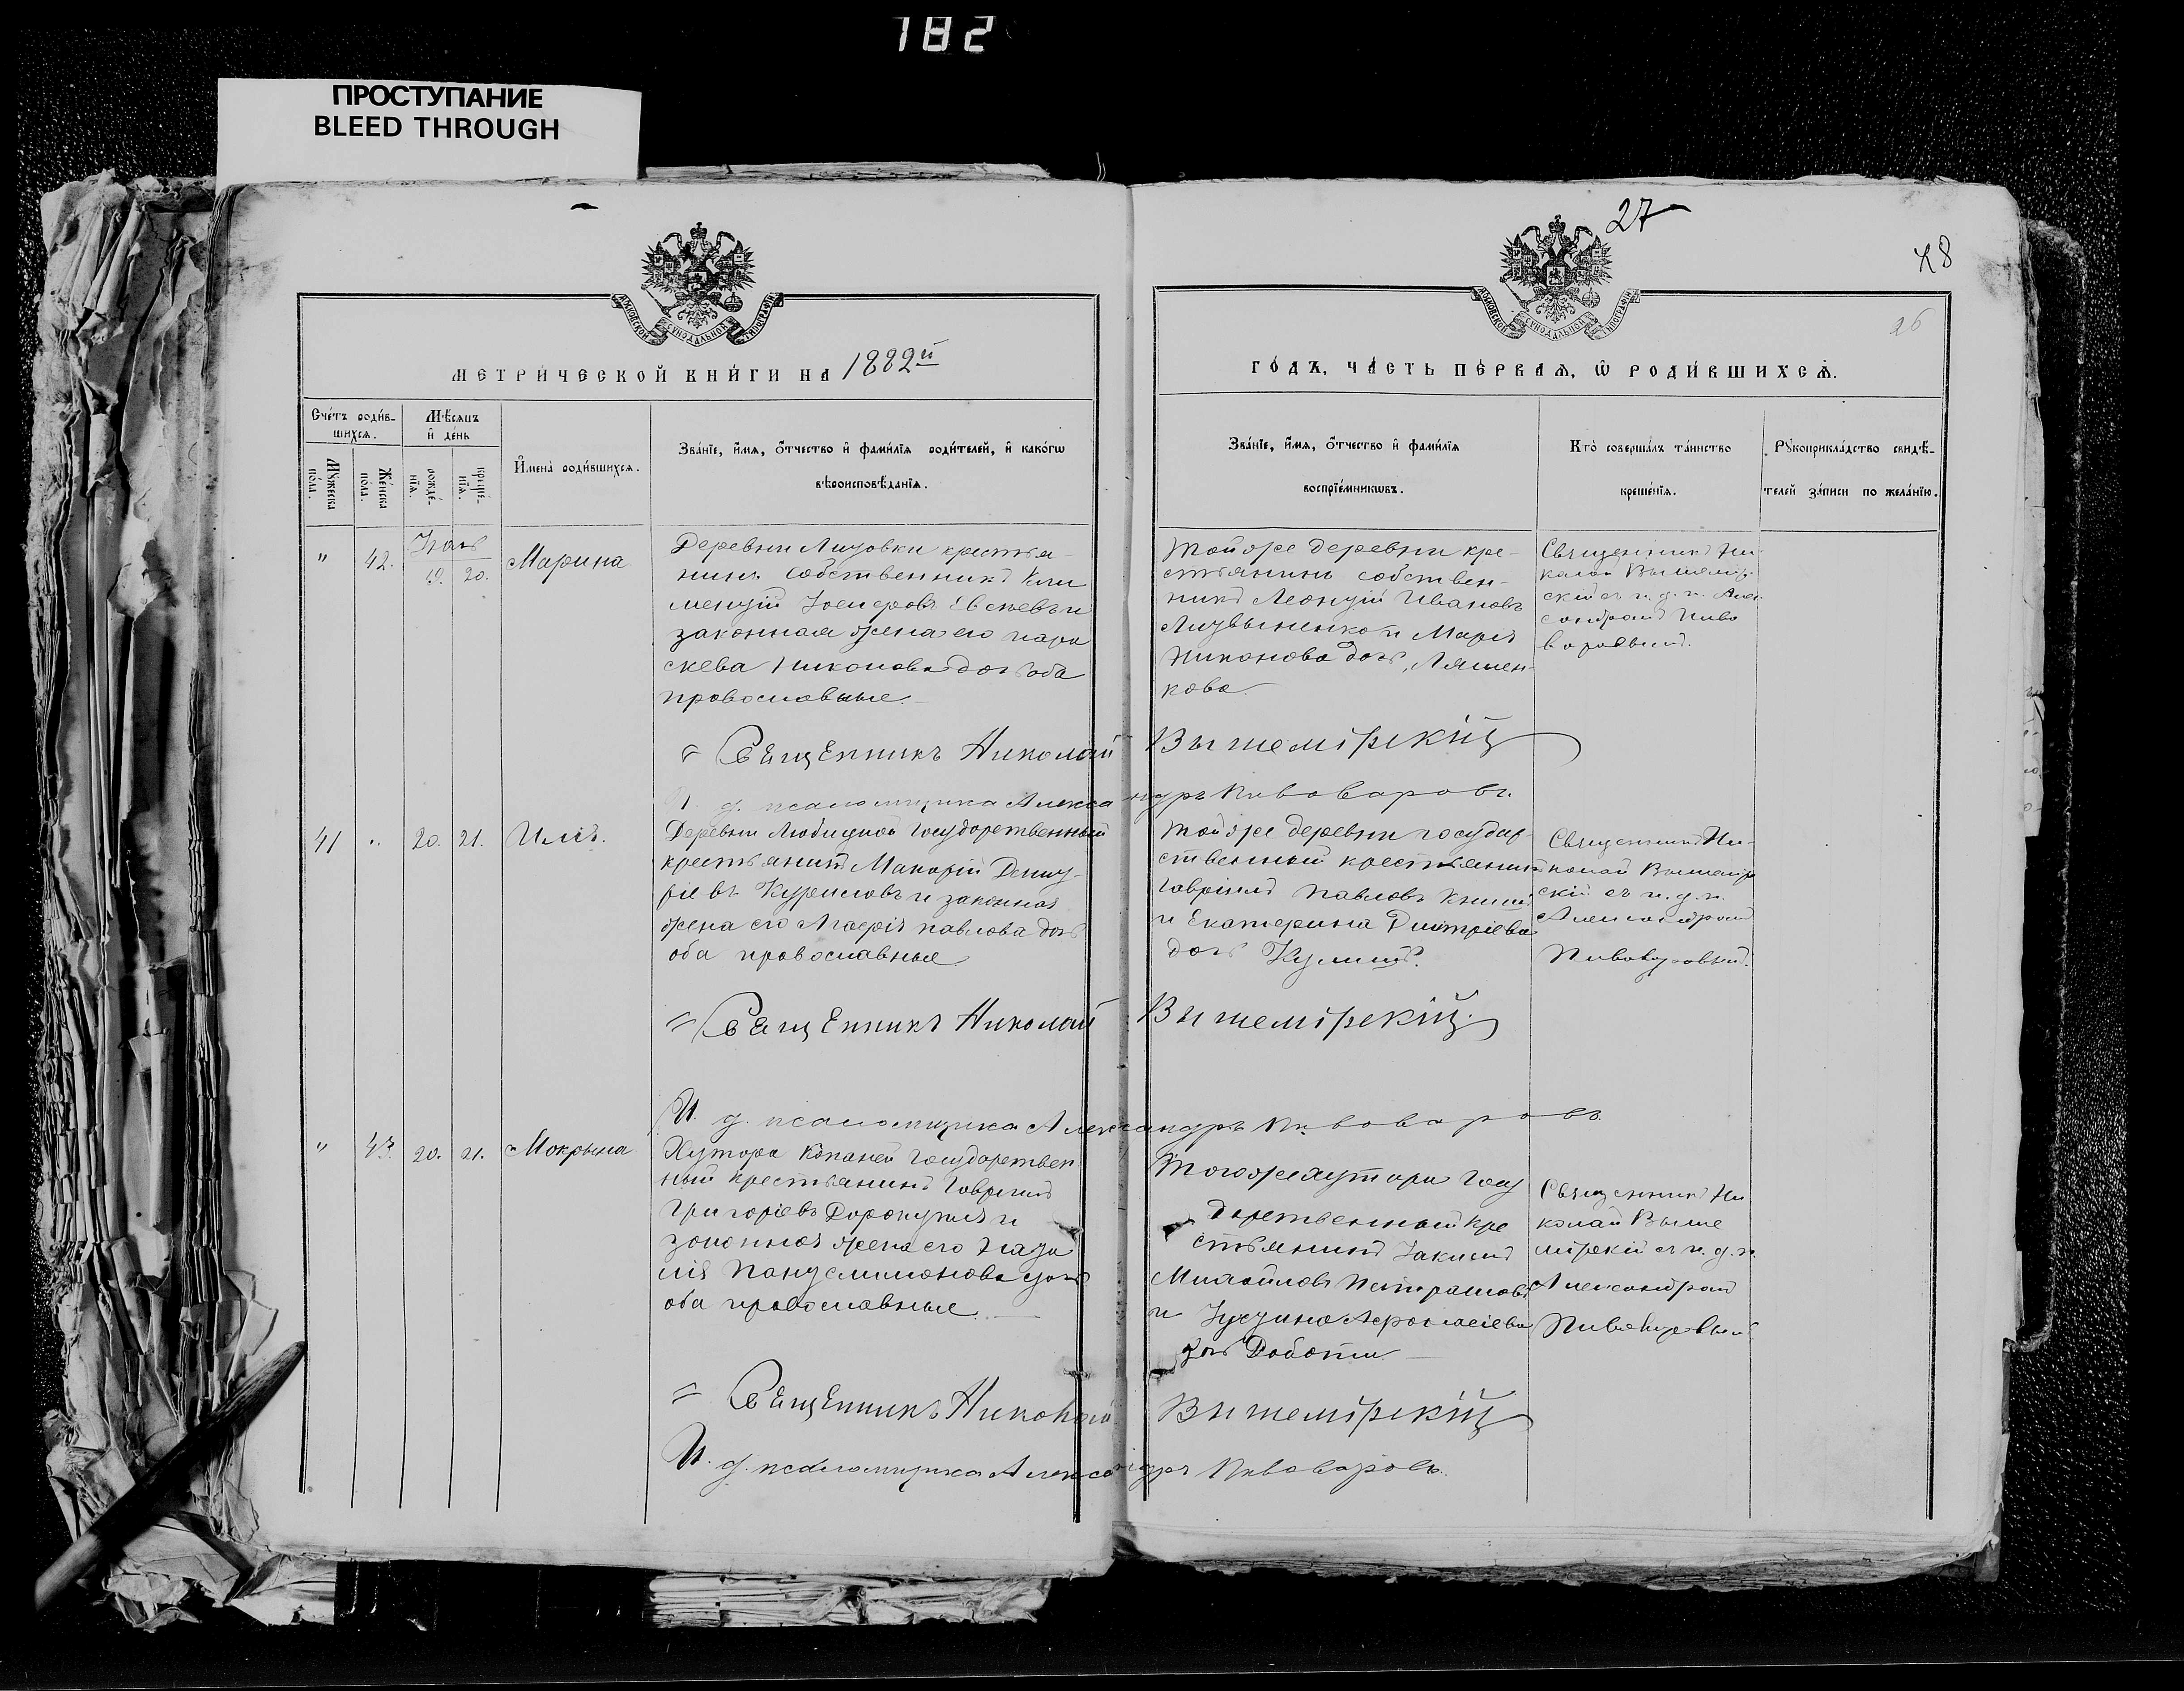 182
ПРОСТУПАНИЕ
BLEED THROUGH
27
48
26
МОСКОВСКОЙ СѴНОДАЛЬНОЙ ТИПОГРАФІИ
МОСКОВСКОЙ СѴНОДАЛЬНОЙ ТИПОГРАФІИ
МЕТРИ́ЧЕСКОЙ КНИ́ГИ НА 1882й
ГО́ДЪ, ЧА́СТЬ ПЕ́РВАѦ, Ѡ҆ РОДИ́ВШИХСѦ.
Сче́тъ роди́в-
шихсѧ.
Мꙋ́жеска по́ла.
Же́нска по́ла.
Мѣ́сѧцъ
и҆ де́нь
рожде́-
нїѧ.
креще́-
нїѧ.
И҆мена̀ роди́вшихсѧ.
Зва́нїе, и҆́мѧ, ѻ҆́тчество и҆ фами́лїѧ роди́телей, и҆ како́гѡ
вѣроисповѣ́данїѧ.
Зва́нїе, и҆́мѧ, ѻ҆́тчество и҆ фами́лїѧ
воспрїе́мникѡвъ.
Кто̀ соверша́лъ та́инство
креще́нїѧ.
Рꙋкоприкла́дство свидѣ́-
телей за́писи по жела́нїю.
" 42. 19. 20. Марина
Деревни Лизовки крестья-
нинъ собственникъ Кли
ментій
законная жена его пара
скева Никонова дочь оба
православные.
Той же деревни кре-
стьянинъ собствен-
никъ Леонтій Ивановъ
и Марія
Никонова дочь, Ляшен-
кова.
Священникъ Ни-
колай Вышемір-
скій съ и. д. п. Алек
сандромъ Пиво
варовымъ.
Священникъ Николай Вышемірскій
И. д. псаломщика Александръ Пивоваровъ.
41 " 20. 21. Илія.
Деревни Любицкой государственный
крестьянинъ Макарій
и законная
жена его Агафія Павлова дочь
оба православные
Той же деревни государ-
ственный крестьянинъ
Гавріилъ Павловъ
и Екатерина Дмитріева
дочь
Священникъ Ни-
колай Вышемір
скій съ и. д. п.
Александромъ
Пивоваровымъ.
Священникъ Николай Вышемірскій
И. д. псаломщика Александръ Пивоваровъ.
" 43. 20. 21. Мокрына
Хутора Копаней государствен
ный крестьянинъ Гавріилъ
Григоріевъ и
законная жена его
Пантелимонова дочь
оба православные.
Того же хутора госу
дарственный кре
стьянинъ
Михайловъ
и Афанасіева
дочь
Священникъ Ни
колай Выше
мірскій съ и. д. п.
Александромъ
Пивоваровымъ
Священникъ Николай Вышемірскій
И. д. псаломщика Александръ Пивоваровъ.